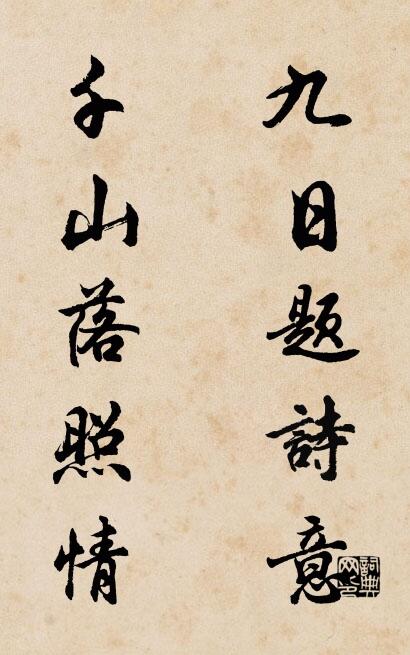 九日题詩意
千山落照情
詞典网印